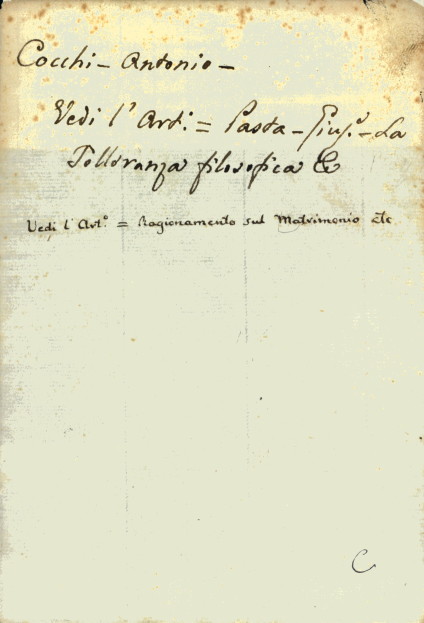 Cocchi - Antonio -
Vedi l' Art.º = Pasta - Gius.e - La
Tolleranza filosofica &
Vedi l' Art.º = Ragionamento sul Matrimonio etc
C